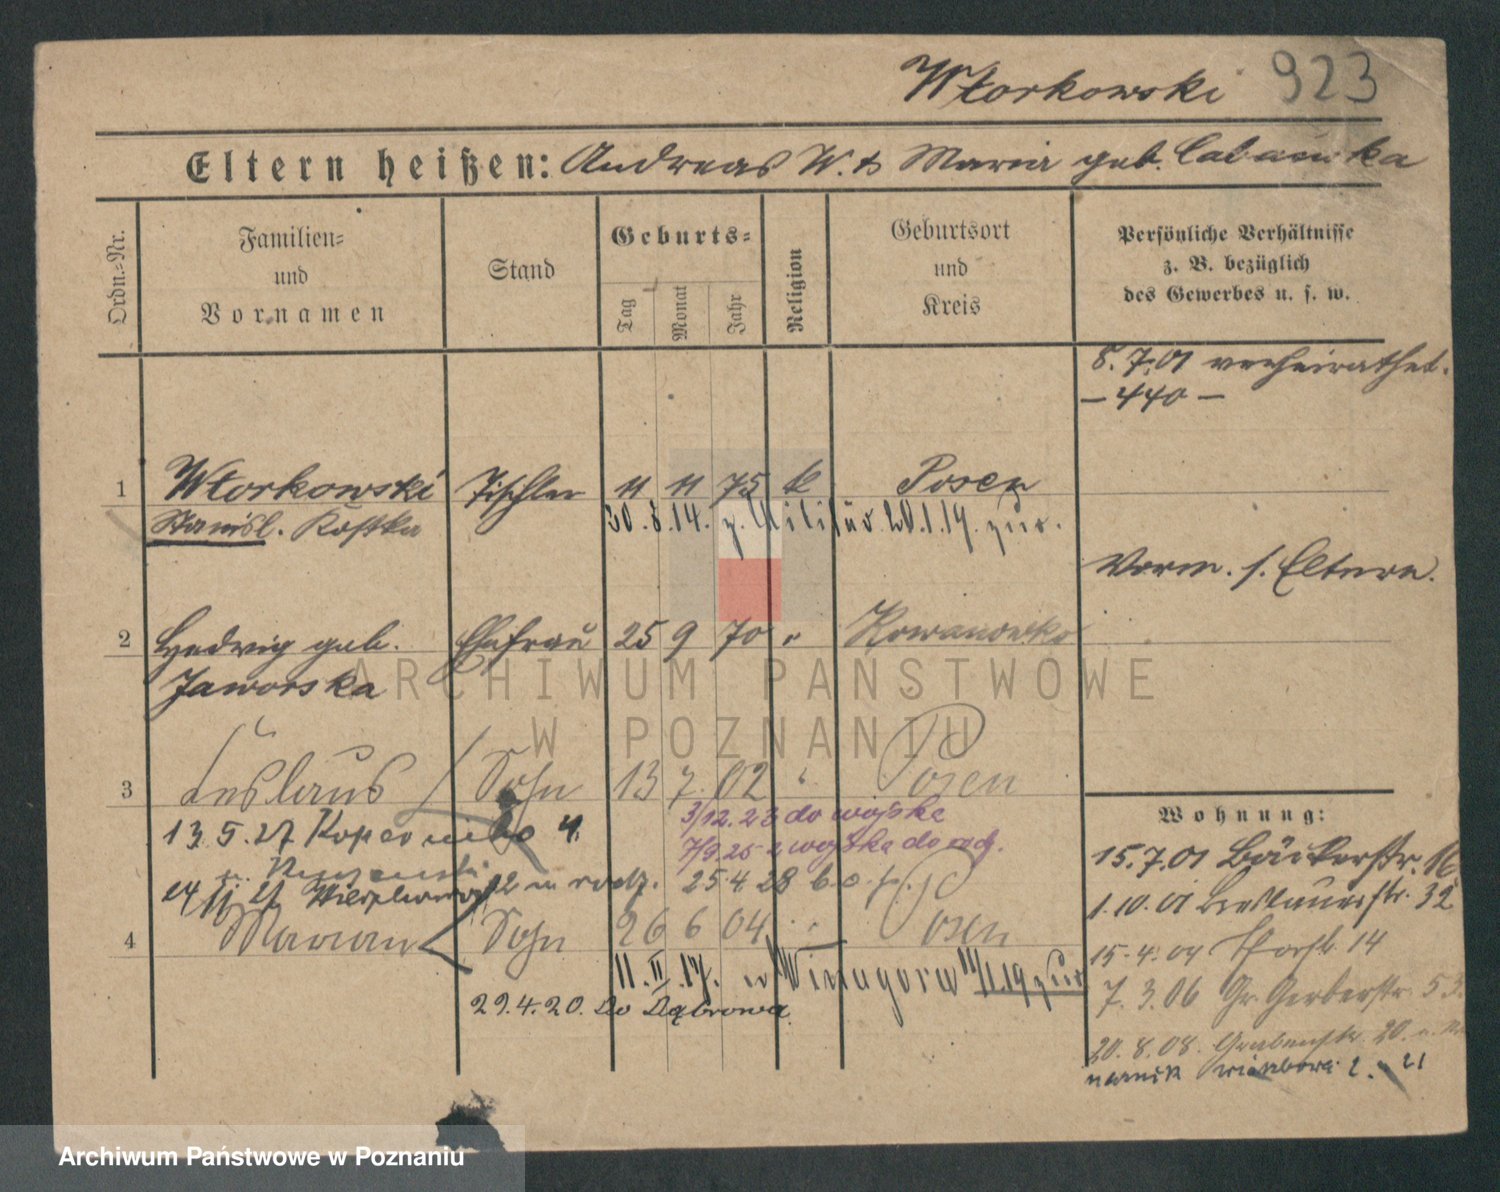 Wtorkowski 923
Eltern heißen: Andreas W. & Maria geb.
Ordn.-Nr.
Familien- und Vornamen
Stand
Geburts-
Tag Monat Jahr
Religion
Geburtsort und Kreis
Persönliche Verhältnisse
z. B. bezüglich
des Gewerbes u. s. w.
8.7.01 verheirathet.
– 440 –
1 Wtorkowski Tischler 11 11 75 k Posen
Stanisl. Kostka 30.8.14. z. Militär 20.1.19. zur.
Vorm. s. Eltern.
2 Hedwig geb. Ehefrau 25 9 70 " Kowanowko
Jaworska
3 Leslaus Sohn 13 7. 02 " Posen
3/12.23 do wojska
13.5.27 4.
7/9.25 z wojska do rodz.
24/11 27 12 m rodz. 25.4 28
4 Marian Sohn 26 6 04 " Posen
11.II.17. n Winagora 11/1.19 zur
29.4.20. Do Dąbrowa
Wohnung:
15.7.01 Bäckerstr. 16
1.10.01 Breslauerstr. 32
15.4.04 14
7.3.06 Gr. Gerberstr. 53
20.8.08. Grabenstr. 20.
2. 21
ARCHIWUM PAŃSTWOWE
W POZNANIU
Archiwum Państwowe w Poznaniu